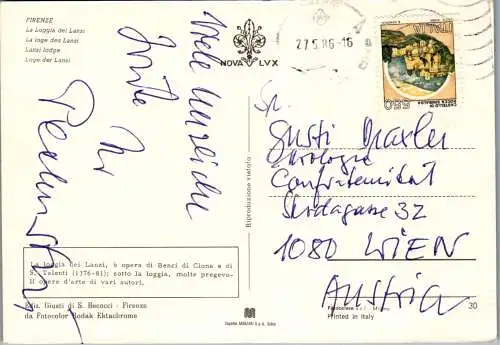 FIRENZE
La Loggia dei Lanzi
La loge des Lanzi
Lanzi lodge
Loge der Lanzi
NOVA LVX
27.5.86-16
ITALIA
CASTELLO DI
ROCCA SINIBALDA
550
Viele herzliche
Grüße
Ihr
Riproduzione vietata
Gusti
Urologie
Confraternität
Skodagasse 32
1080 WIEN
AUSTRIA
La loggia dei Lanzi, è opera di Benci di Cione e di
S. Talenti (1376-81); sotto la loggia, molte pregevo-
li opere d'arte di vari autori.
Ediz. Giusti di S. Becocci - Firenze
da Fotocolor Kodak Ektachrome
Printed in Italy
30